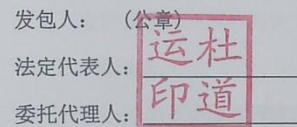 发包人：（公章）
法定代表人：
委托代理人：
杜道运印